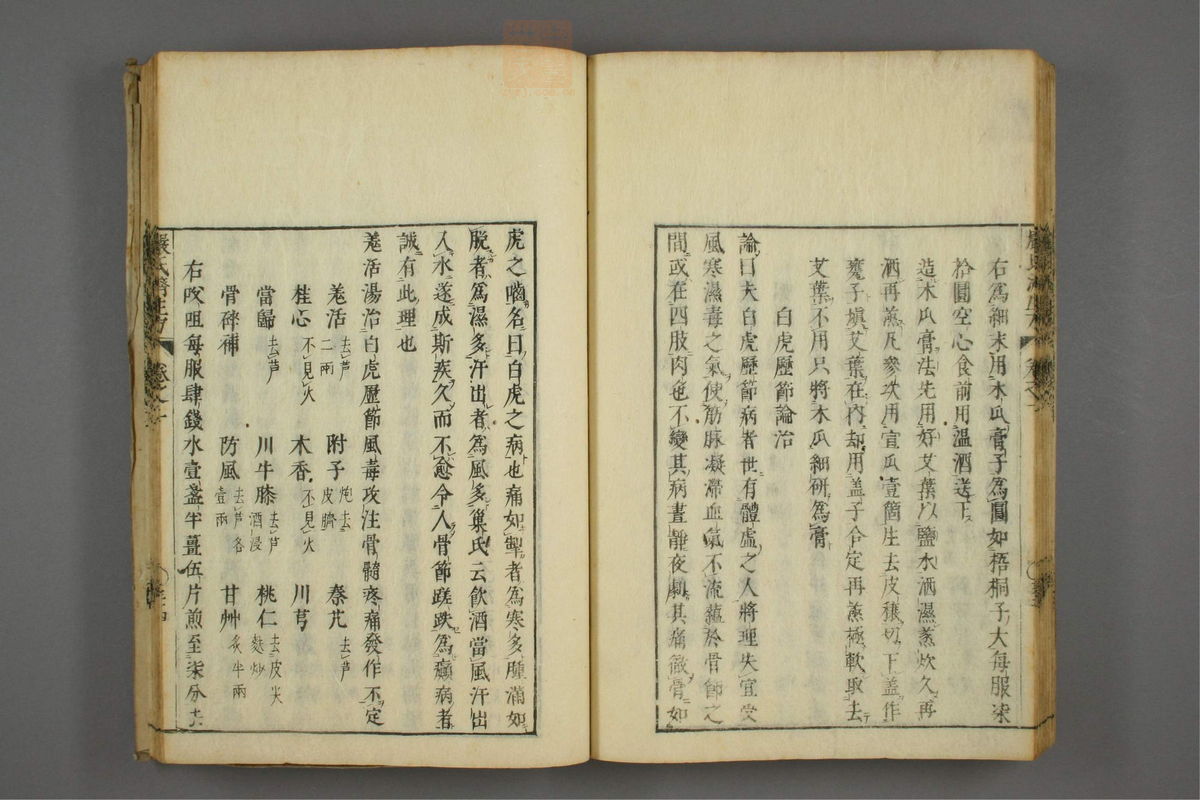 右爲細末用木瓜膏子爲圓如梧桐子大每服柒
拾圓空心食前用溫酒送下
造木瓜膏法先用好艾葉以鹽水洒濕蒸炊久再
洒再蒸凡參次用宣瓜壹箇生去皮穰切下盖作
甕子塡艾葉在內却用盖子合定再蒸極軟取去
艾葉不用只將木瓜細研爲膏
白虎歷節論治
論曰夫白虎歷節病者世有體虛之人將理失宜受
風寒濕毒之氣使筋脉凝滯血氣不流蘊於骨節之
間或在四肢肉色不變其病晝靜夜劇其痛徹骨如
虎之嚙名曰白虎之病也痛如掣者爲寒多腫滿如
脫者爲濕多汗出者爲風多巢氏云飲酒當風汗出
入水遂成斯疾久而不愈令人骨節蹉跌爲癲病者
誠有此理也
羗活湯治白虎歷節風毒攻注骨髓疼痛發作不定
羗活去芦二兩 附子炮去皮臍 秦艽去芦
桂心不見火 木香不見火 川芎
當歸去芦 川牛膝去芦酒浸 桃仁去皮尖麩炒
骨碎補 防風去芦各壹兩 甘艸炙半兩
右㕮咀每服肆錢水壹盞半薑伍片煎至柒分去
嚴氏濟生方 卷之一